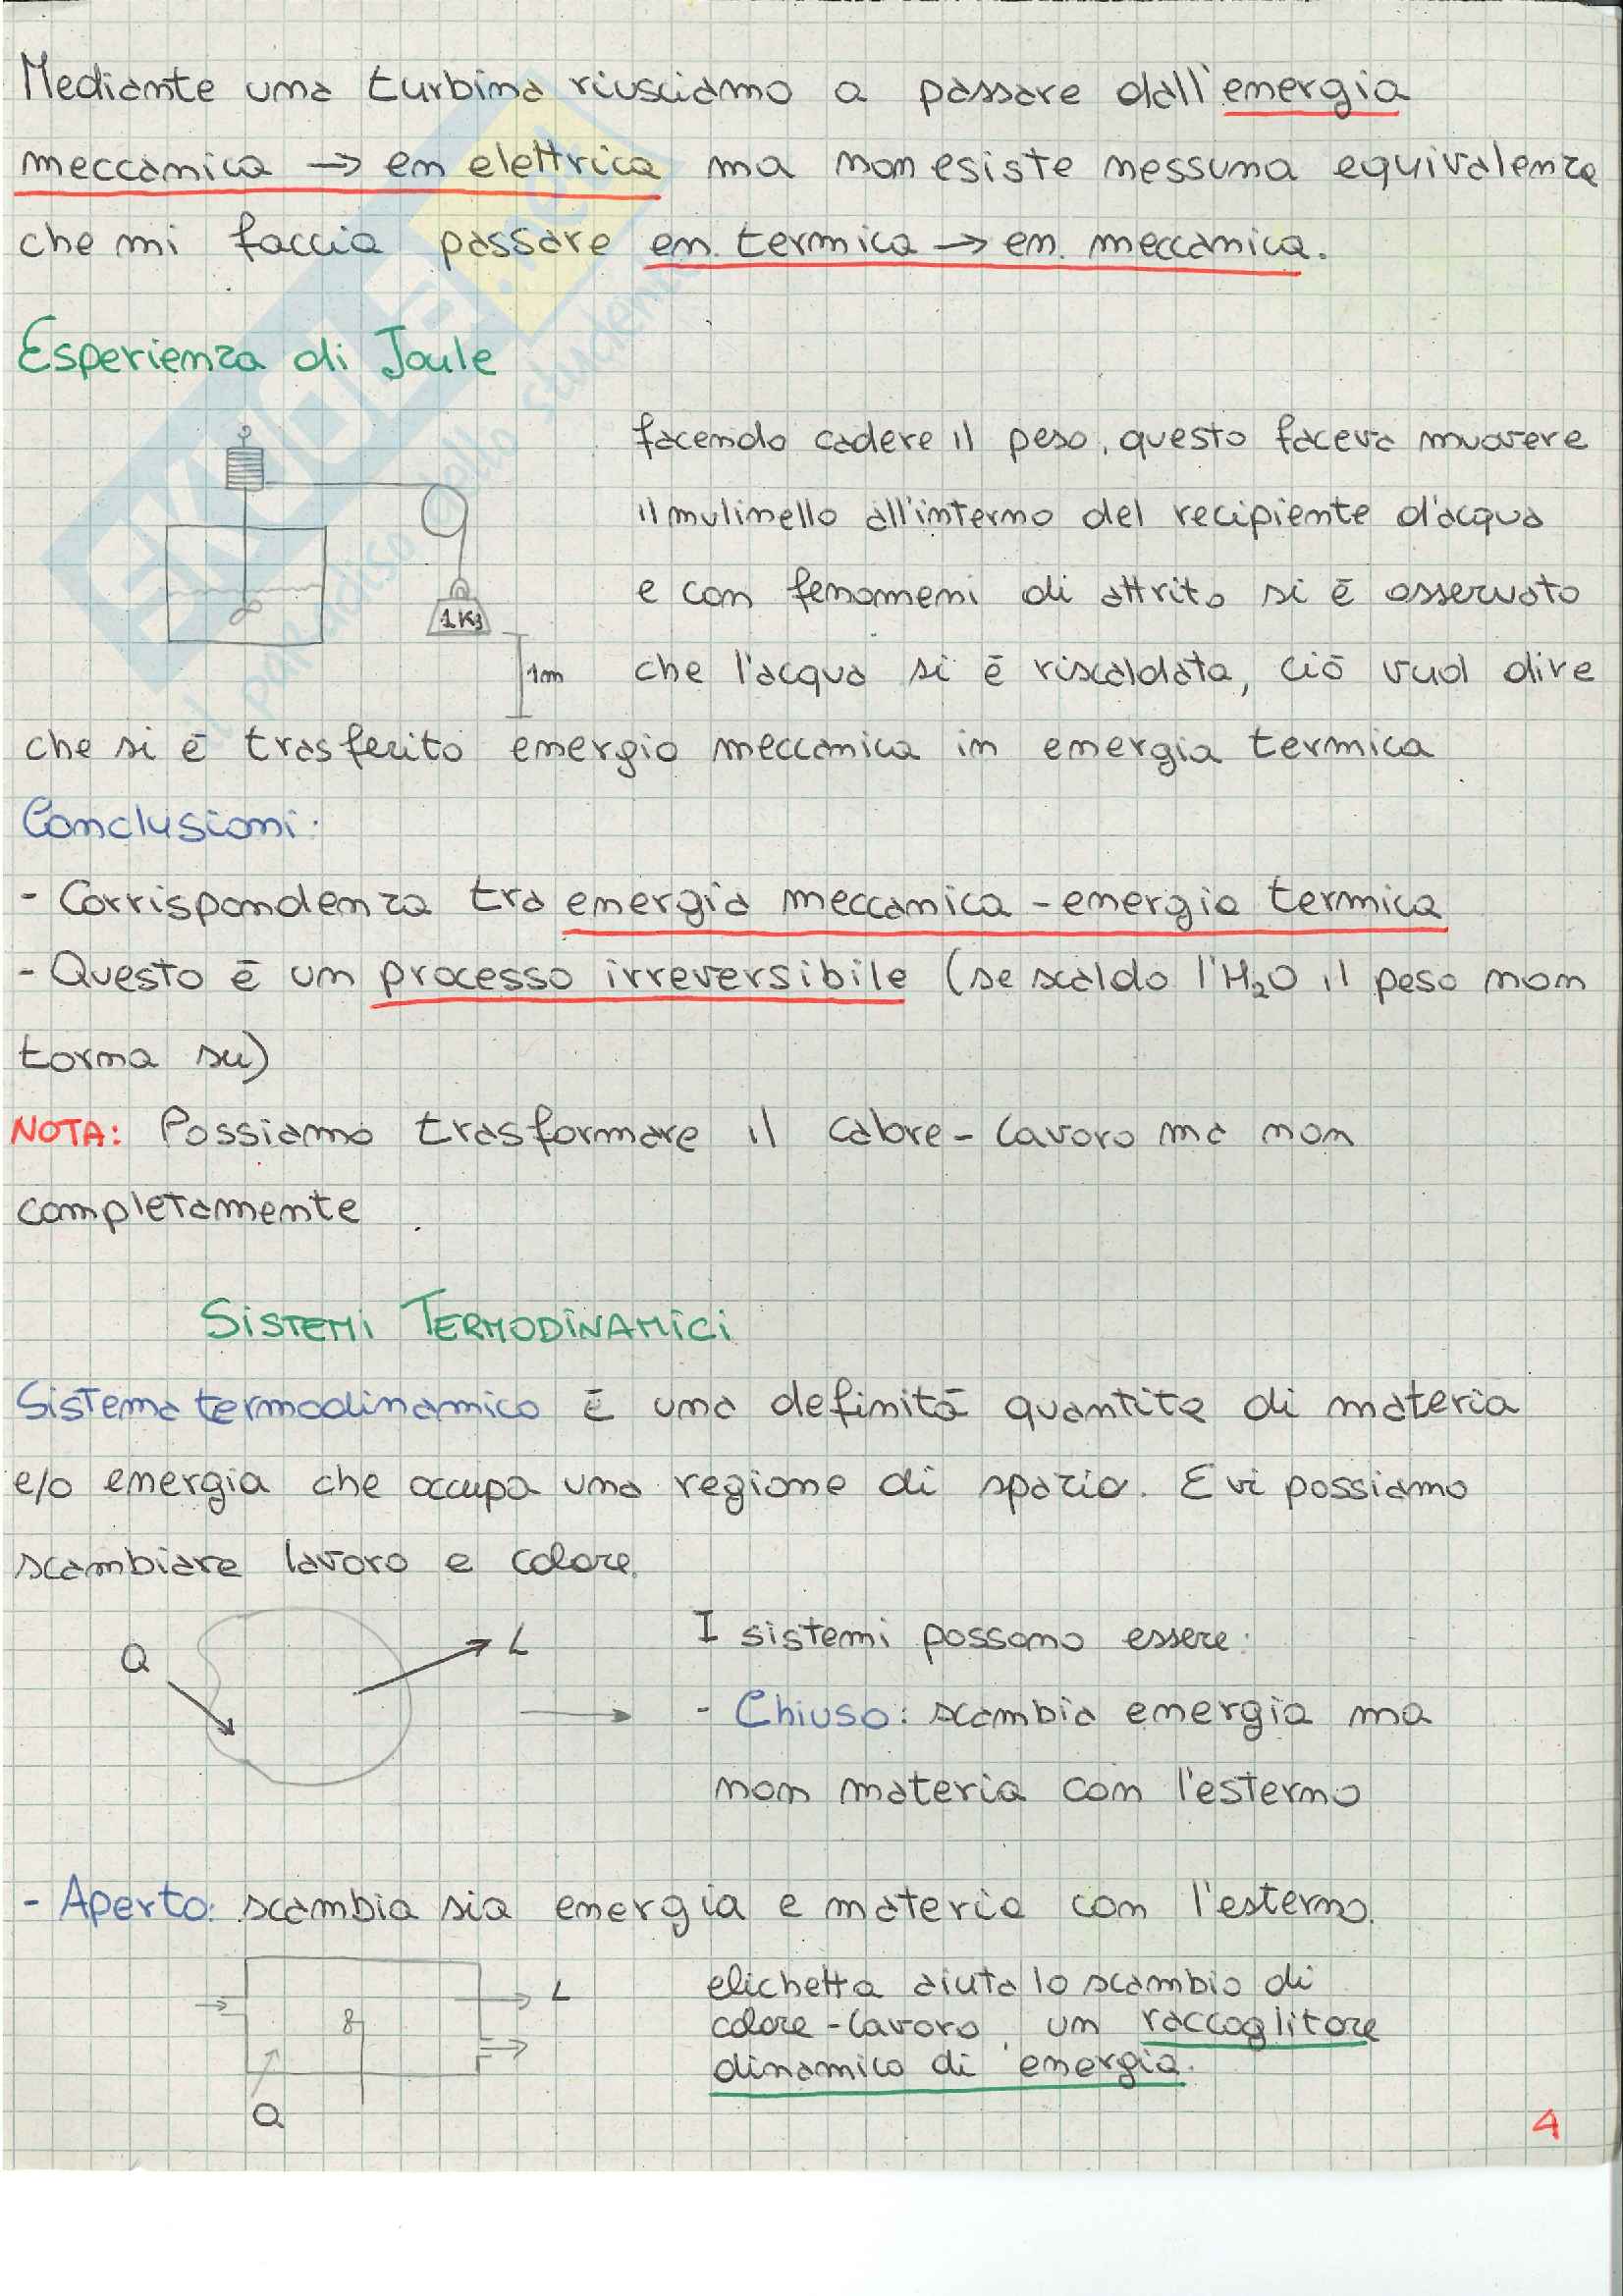 Mediante una turbina riusciamo a passare dall'energia
meccanica → en elettrica ma non esiste nessuna equivalenza
che mi faccia passare en. termica → en. meccanica.
Esperienza di Joule
facendo cadere il peso, questo faceva muovere
il mulinello all'interno del recipiente d'acqua
1Kg
e con fenomeni di attrito si è osservato
1m
che l'acqua si è riscaldata, ciò vuol dire
che si è trasferito energia meccanica in energia termica
Conclusioni:
- Corrispondenza tra energia meccanica - energia termica
- Questo è un processo irreversibile (se scaldo l'H₂O il peso non
torna su)
NOTA: Possiamo trasformare il calore - lavoro ma non
completamente
SISTEMI TERMODINAMICI
Sistema termodinamico È una definità quantita di materia
e/o energia che occupa una regione di spazio. E vi possiamo
scambiare lavoro e calore.
Q
L
I sistemi possono essere:
- Chiuso: scambia energia ma
non materia con l'esterno
- Aperto: scambia sia energia e materia con l'esterno.
L
Q
elichetta aiuta lo scambio di
calore - lavoro, un raccoglitore
dinamico di energia.
4
SKUOLA.net
il paradiso dello studente